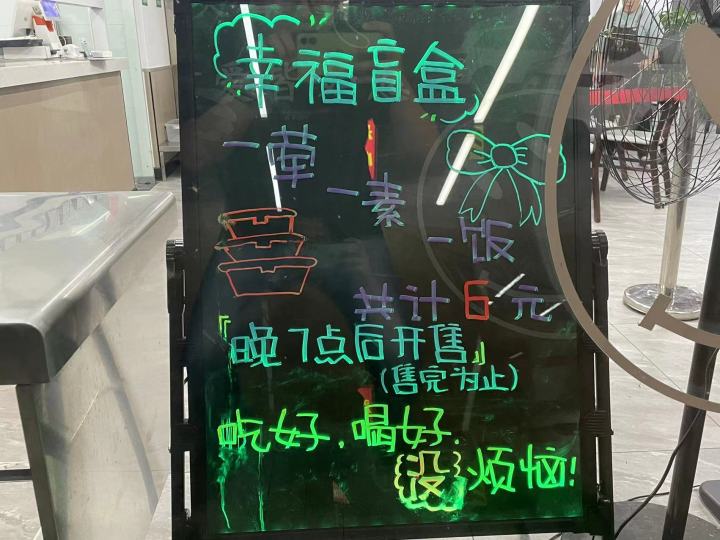 幸福盲盒
一荤
一素
一饭
共计6元
『晚7点后开售』
(售完为止)
吃好,喝好.
没烦恼!